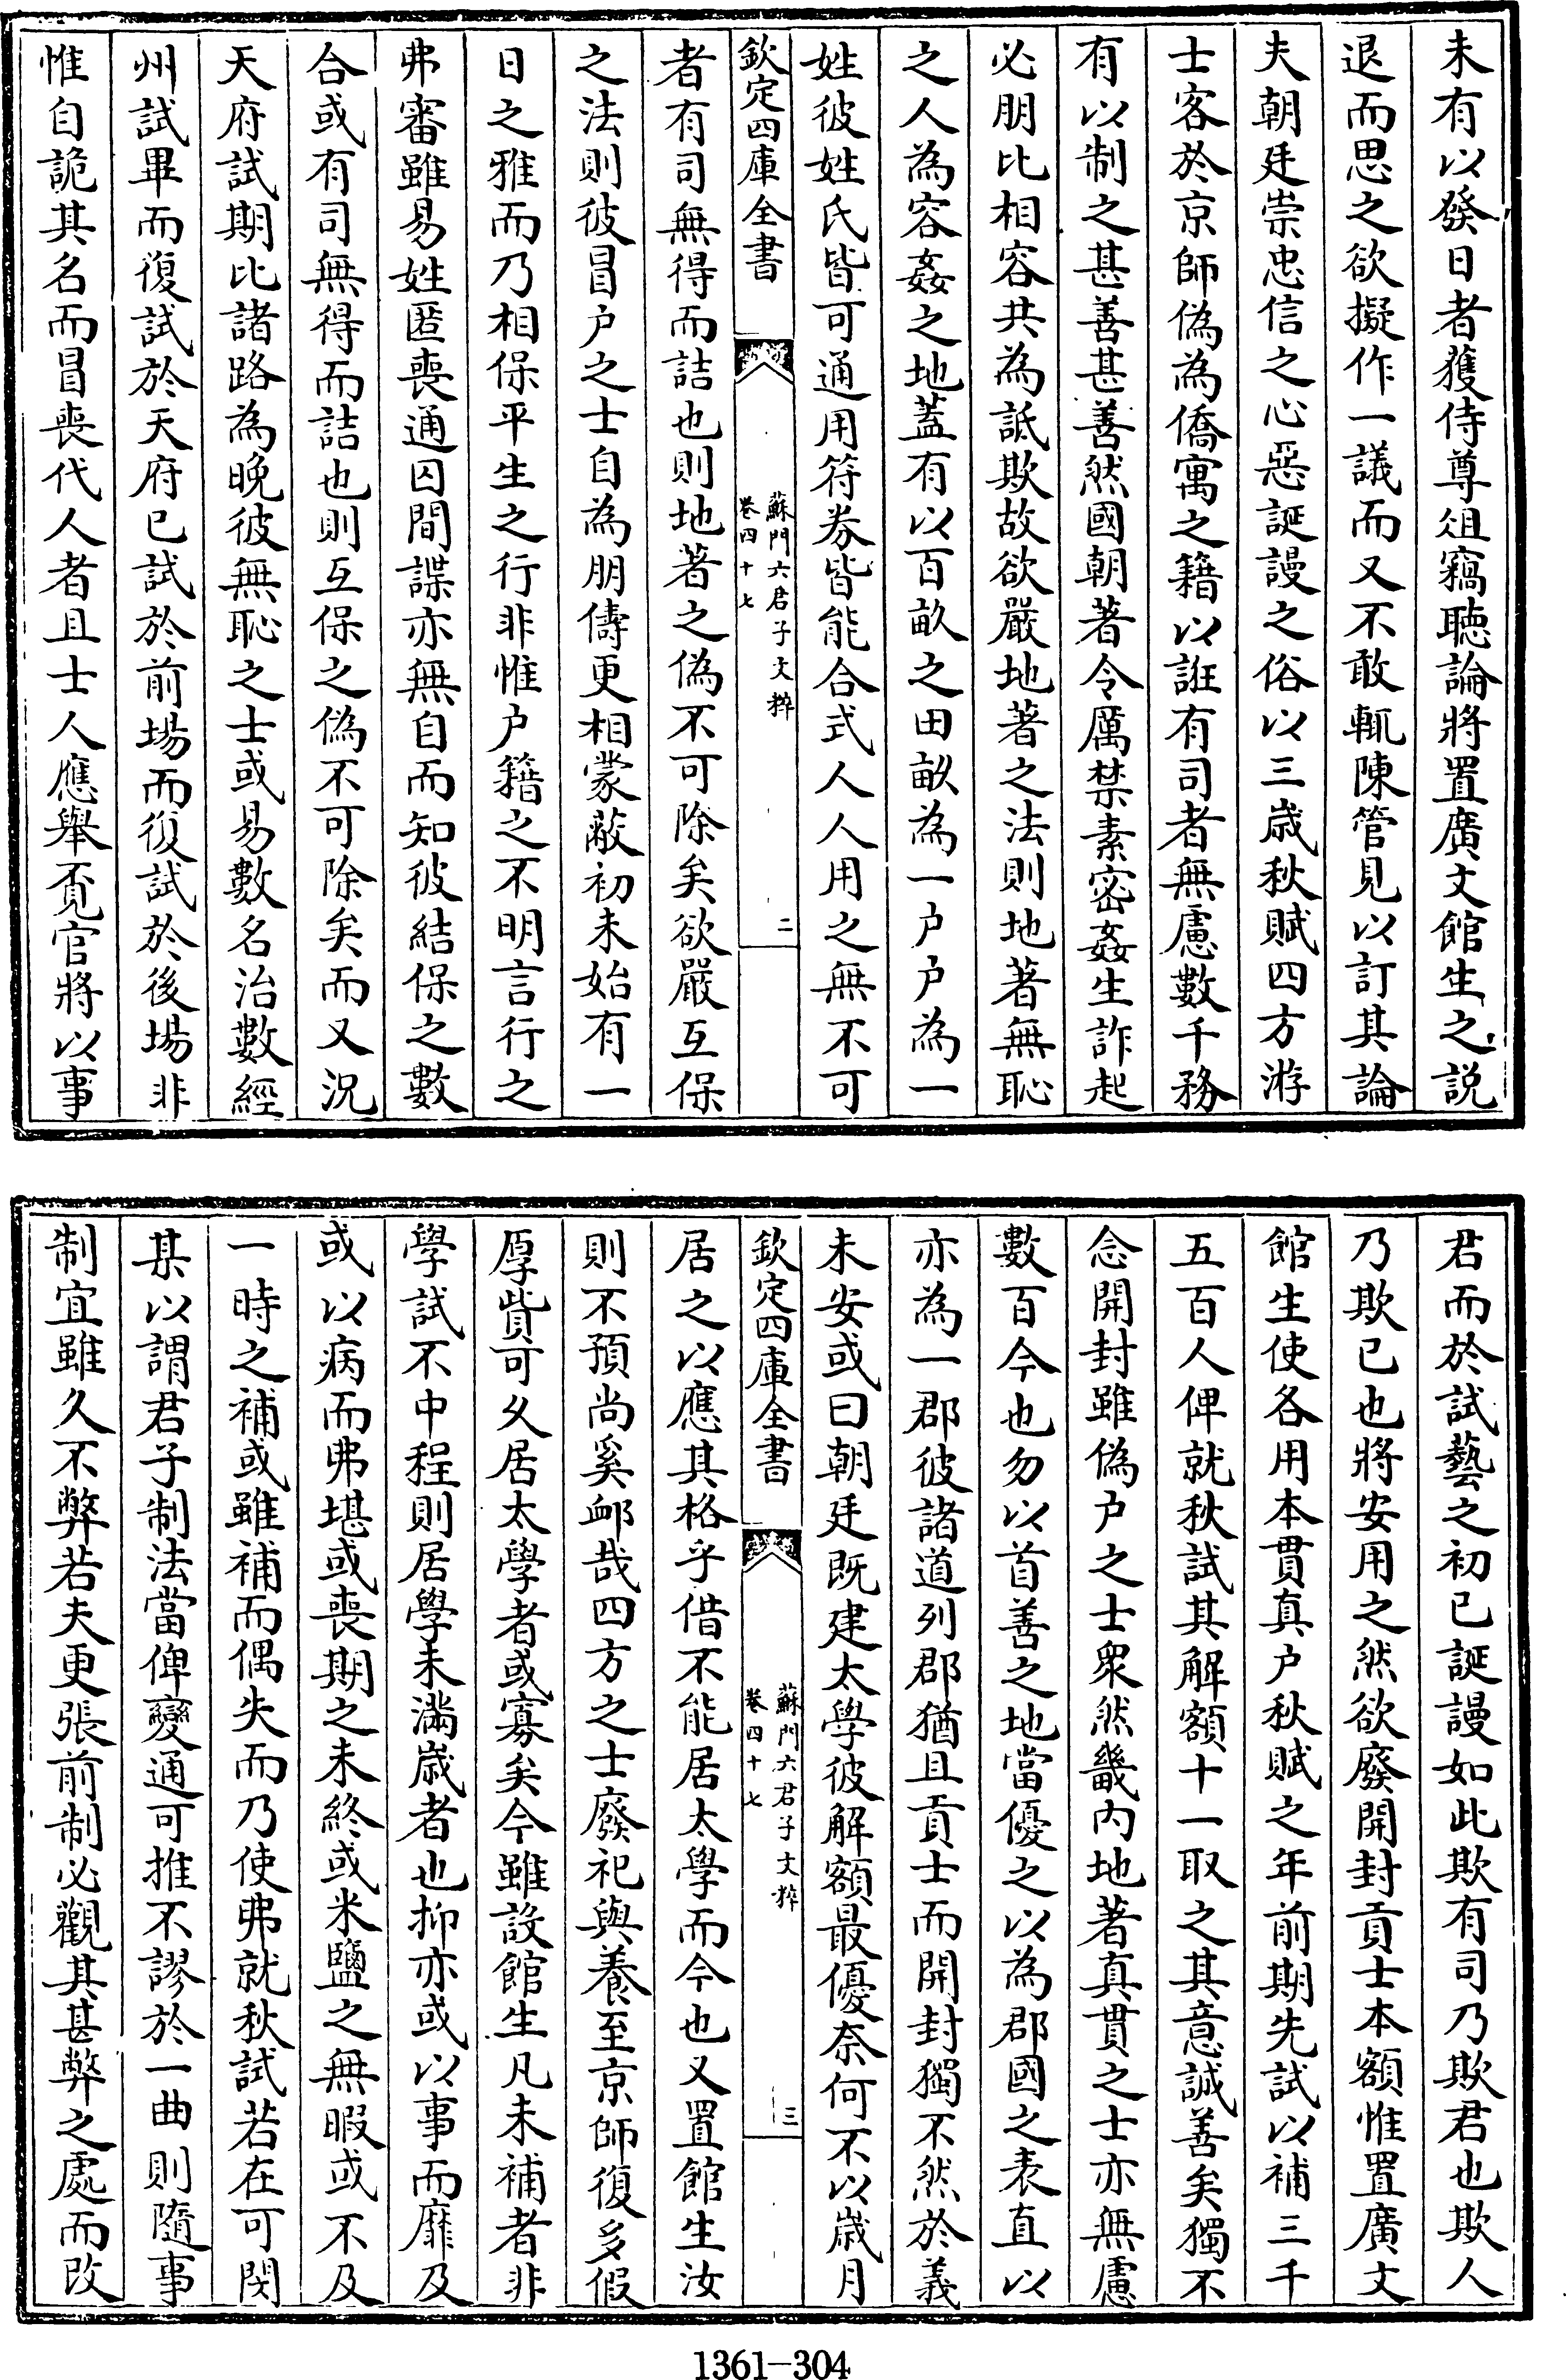 未有以發日者獲侍尊俎竊聴論將置廣文館生之説
退而思之欲擬作一議而又不敢輒陳管見以訂其論
夫朝廷崇忠信之心惡誕謾之俗以三歲秋賦四方游
士客於京師偽為僑寓之籍以誑有司者無慮數千務
有以制之甚善甚善然國朝著令厲禁素密姦生詐起
必朋比相容共為詆欺故欲嚴地著之法則地著無恥
之人為容姦之地蓋有以百畝之田畝為一户户為一
姓彼姓氏皆可通用符券皆能合式人人用之無不可
欽定四庫全書
蘇門六君子文粹
卷四十七
二
者有司無得而詰也則地著之偽不可除矣欲嚴互保
之法則彼冒户之士自為朋儔更相蒙蔽初未始有一
日之雅而乃相保平生之行非惟户籍之不明言行之
弗審雖易姓匿喪通囚間諜亦無自而知彼結保之數
合或有司無得而詰也則互保之偽不可除矣而又況
天府試期比諸路為晚彼無恥之士或易數名治數經
州試畢而復試於天府已試於前場而復試於後場非
惟自詭其名而冒喪代人者且士人應舉覔官將以事
君而於試藝之初已誕謾如此欺有司乃欺君也欺人
乃欺已也將安用之然欲廢開封貢士本額惟置廣文
館生使各用本貫真户秋賦之年前期先試以補三千
五百人俾就秋試其解額十一取之其意誠善矣獨不
念開封雖偽户之士衆然畿内地著真貫之士亦無慮
數百今也勿以首善之地當優之以為郡國之表直以
亦為一郡彼諸道列郡猶且貢士而開封獨不然於義
未安或曰朝廷既建太學彼解額最優奈何不以歲月
欽定四庫全書
蘇門六君子文粹
卷四十七
三
居之以應其格乎借不能居太學而今也又置館生汝
則不預尚奚邺哉四方之士廢祀與養至京師復多假
厚貲可乆居太學者或寡矣今雖設館生凡未補者非
學試不中程則居學未滿歲者也抑亦或以事而靡及
或以病而弗堪或喪期之未終或米鹽之無暇或不及
一時之補或雖補而偶失而乃使弗就秋試若在可閔
某以謂君子制法當俾變通可推不謬於一曲則隨事
制宜雖久不弊若夫更張前制必觀其甚弊之處而改
1361-304